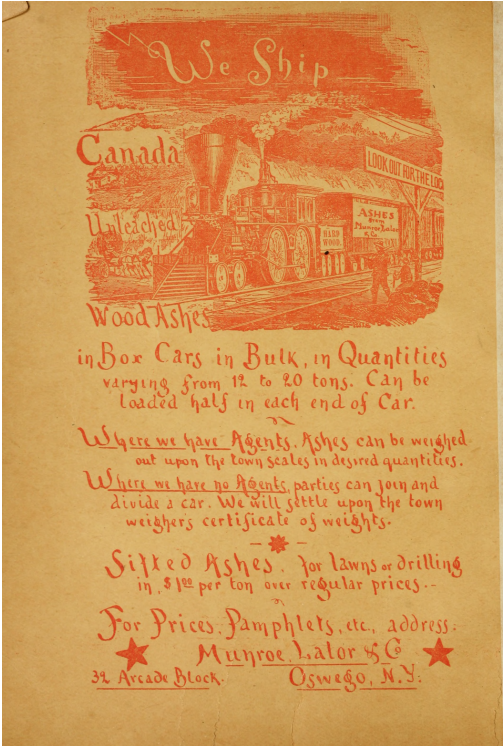 We Ship
Canada
LOOK OUT FOR THE LOC
Unleached
ASHES
from
Munroe, Lalor
& Co.
HARD
WOOD.
Wood Ashes
in Box Cars in Bulk, in Quantities
varying from 12 to 20 tons. Can be
loaded half in each end of Car.
Where we have Agents, Ashes can be weighed
out upon the town scales in desired quantities.
Where we have no Agents, parties can join and
divide a car. We will settle upon the town
weighers certificate of weights.
Sifted Ashes, for lawns or drilling
in, $1.00 per ton over regular prices.
For Prices, Pamphlets, etc., address:
Munroe, Lalor & Co
32 Arcade Block. Oswego, N.Y.